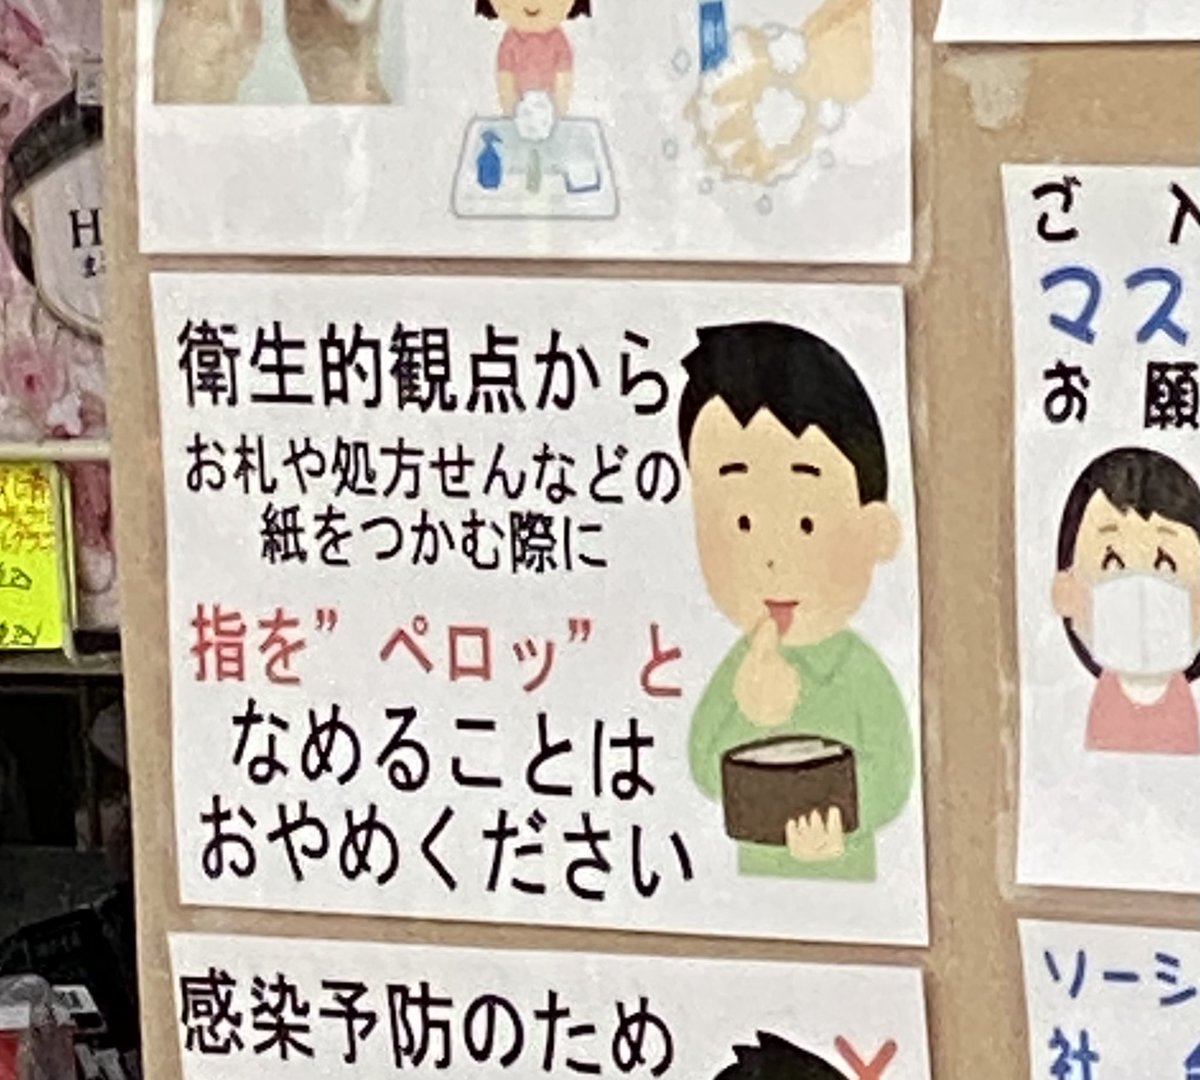 衛生的観点から
お札や処方せんなどの
紙をつかむ際に
指を”ペロッ”と
なめることは
おやめください
感染予防のため
ご入
マス
お願
ソーシ
社